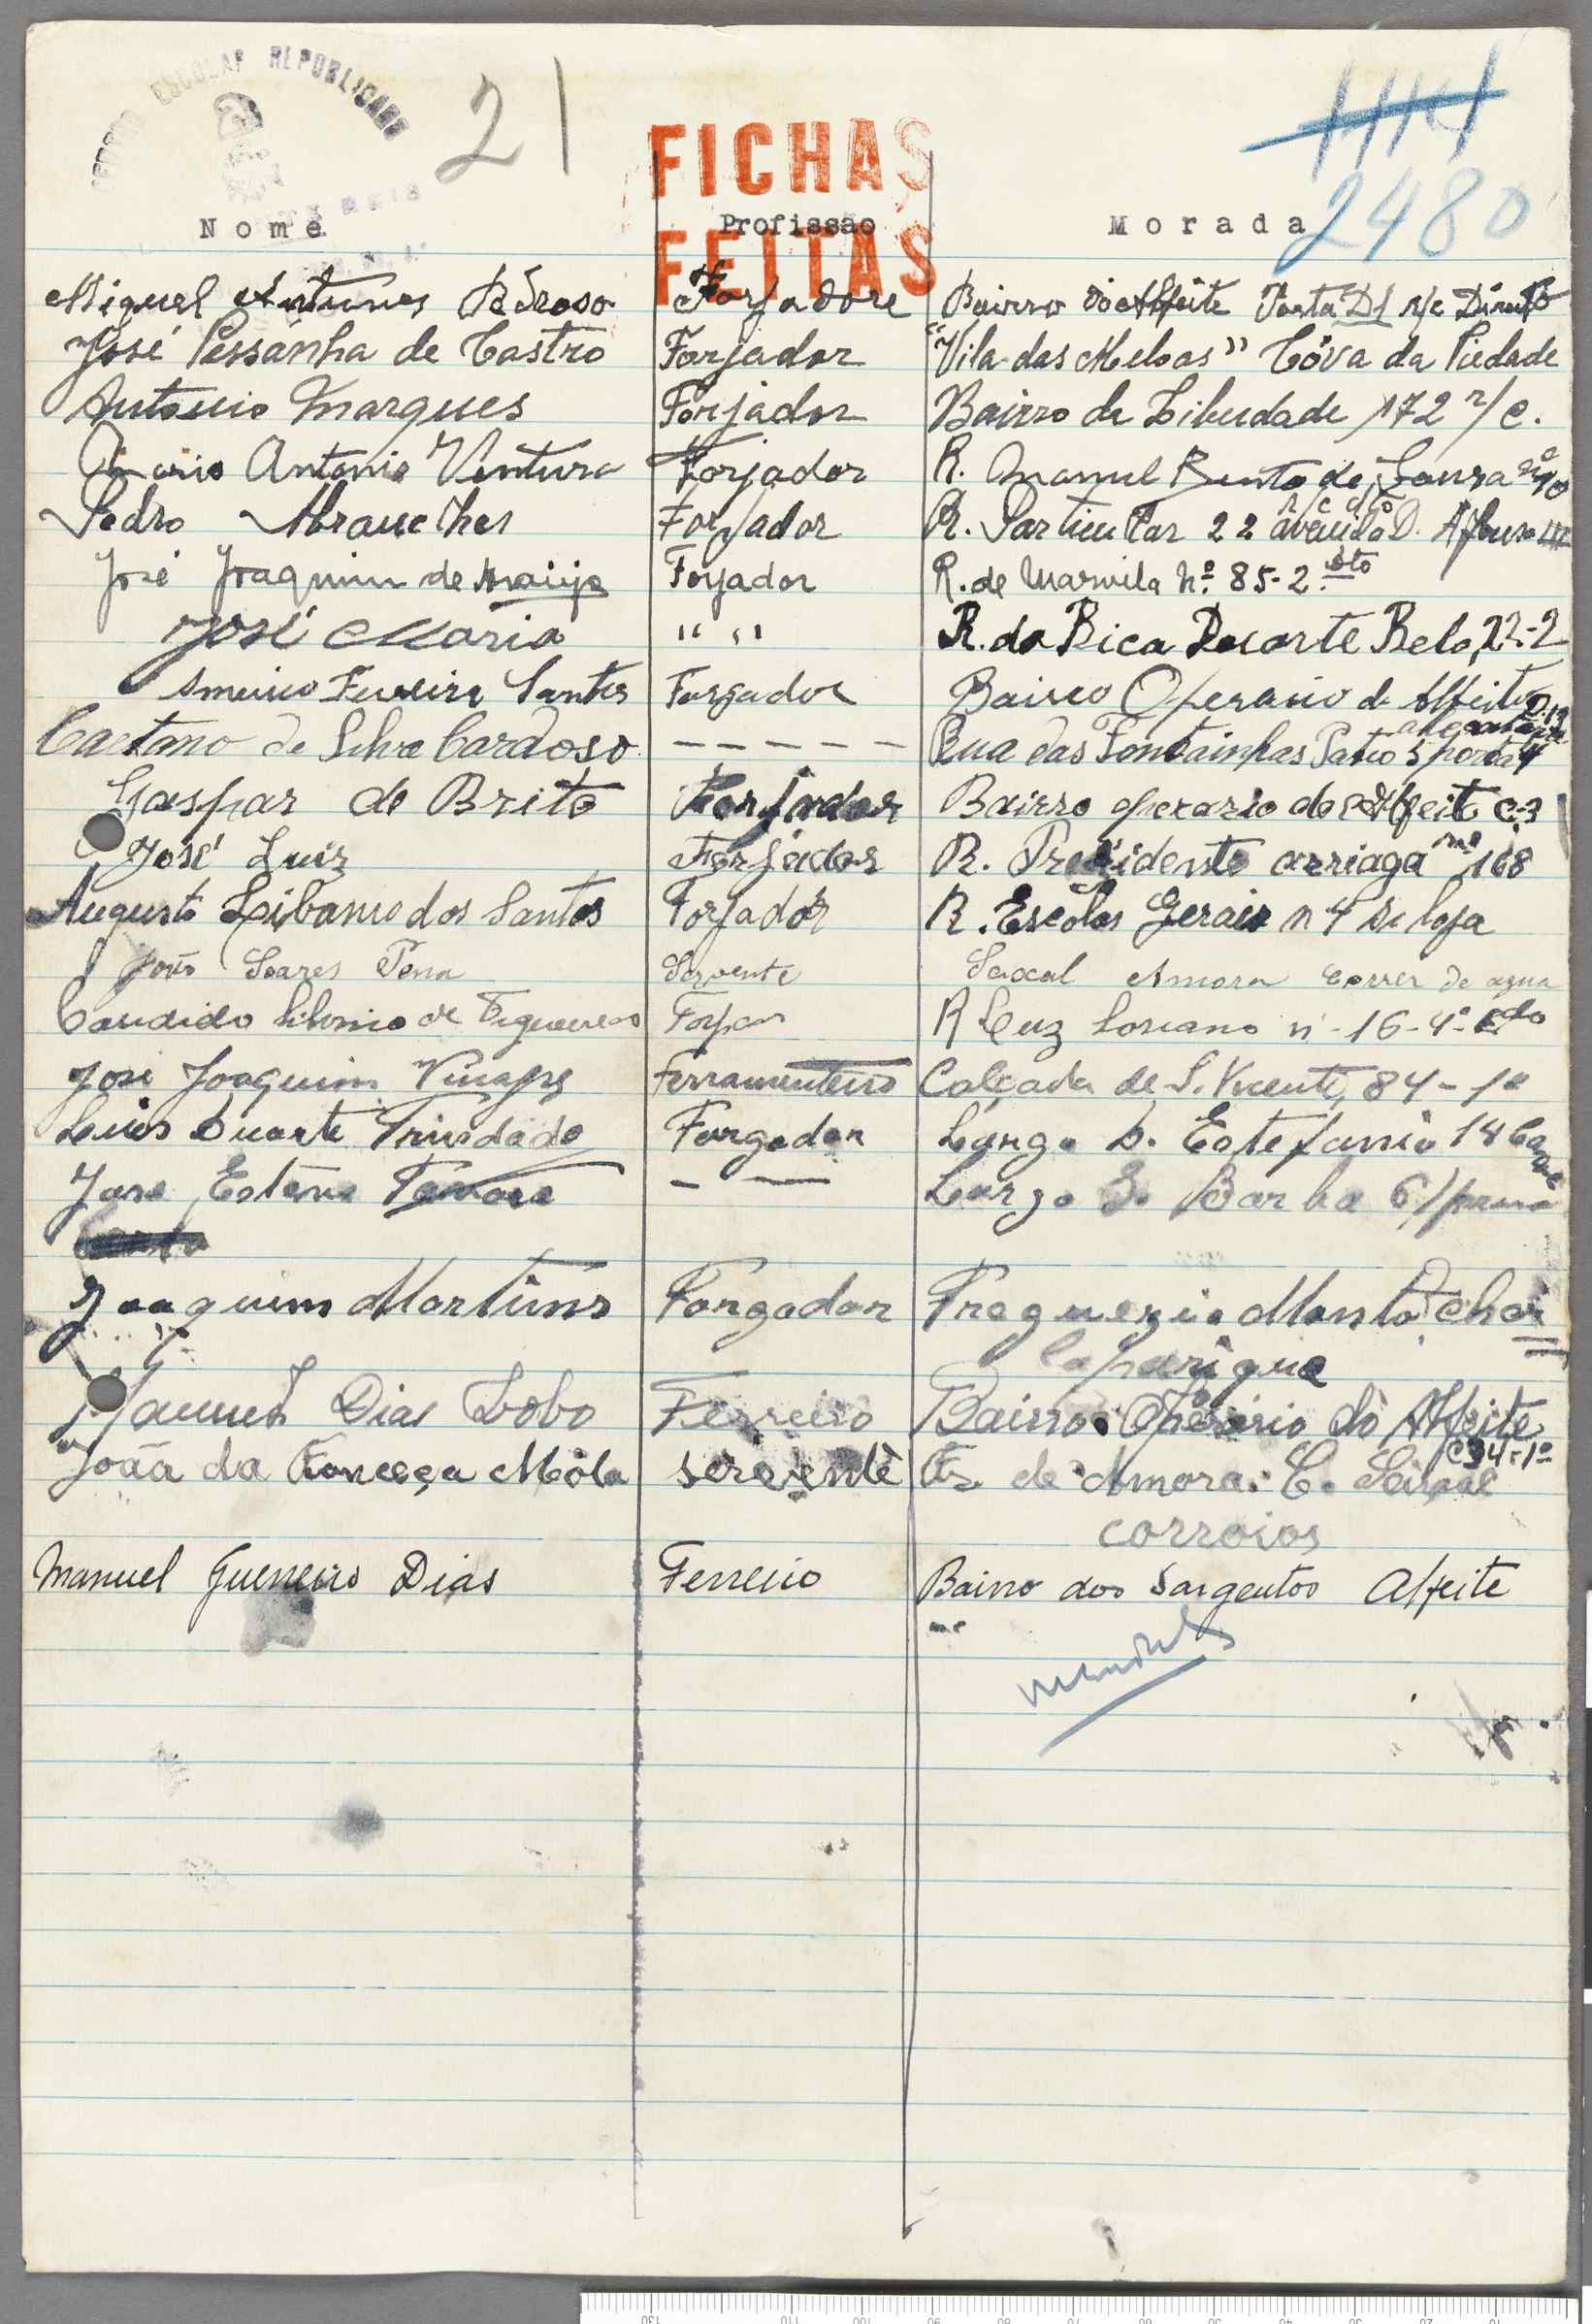 ESCOLAR REPUBLICANO
21
1114
2480
FICHAS
FEITAS
Nome Profissão Morada
Miguel Antunes Pedroso Forjadore Bairro do Alfeite Porta D1 r/c Direito
José Pessanha de Castro Forjador "Vila das Meloas" Cóva da Piedade
Antonio Marques Forjador Bairro da Liberdade 172 r/c.
Antonio Ventura Forjador R. Manuel Bento de Souza nº 10
r/c dto
Pedro Abranches Forjador R. Particular 22 avenida D. Afonso III
José Joaquim de Araújo Forjador R. de Marvila nº 85-2 dto
José Maria " " R. da Bica Duarte Belo, 22-2
Americo Ferreira Santos Forjador Bairro Operario do Alfeite D.12
Caetano da Silva Cardoso ----- Rua das Fontainhas Patio 3 porta 4
Gaspar de Brito Forjador Bairro operario do Alfeit C.3
José Luiz Forjador R. Presidente arriaga nº 168
Augusto Libanio dos Santos Forjador R. Escolas Gerais n 4 loja
João Soares Pena Servente Seixal Amora Correr de agua
Candido de Figueiredo Forjar R Luz Soriano nº 16-4º
José Joaquim Ferramenteiro Calçada de S. Vicente, 84-1º
Luis Duarte Trindade Forgador Largo D. Estefania 14
José Esteve - — Largo Barba 6
Joaquim Martins Forgador Freguezia Monte
Caparique
Manuel Dias Lobo Ferreiro Bairro Operário do Alfeite
C 34-1º
João da Fonceça Móla servente Fr. de Amora. C. Seixal
corroios
Manuel Guerreiro Dias Ferreiro Bairro dos Sargentos Alfeite